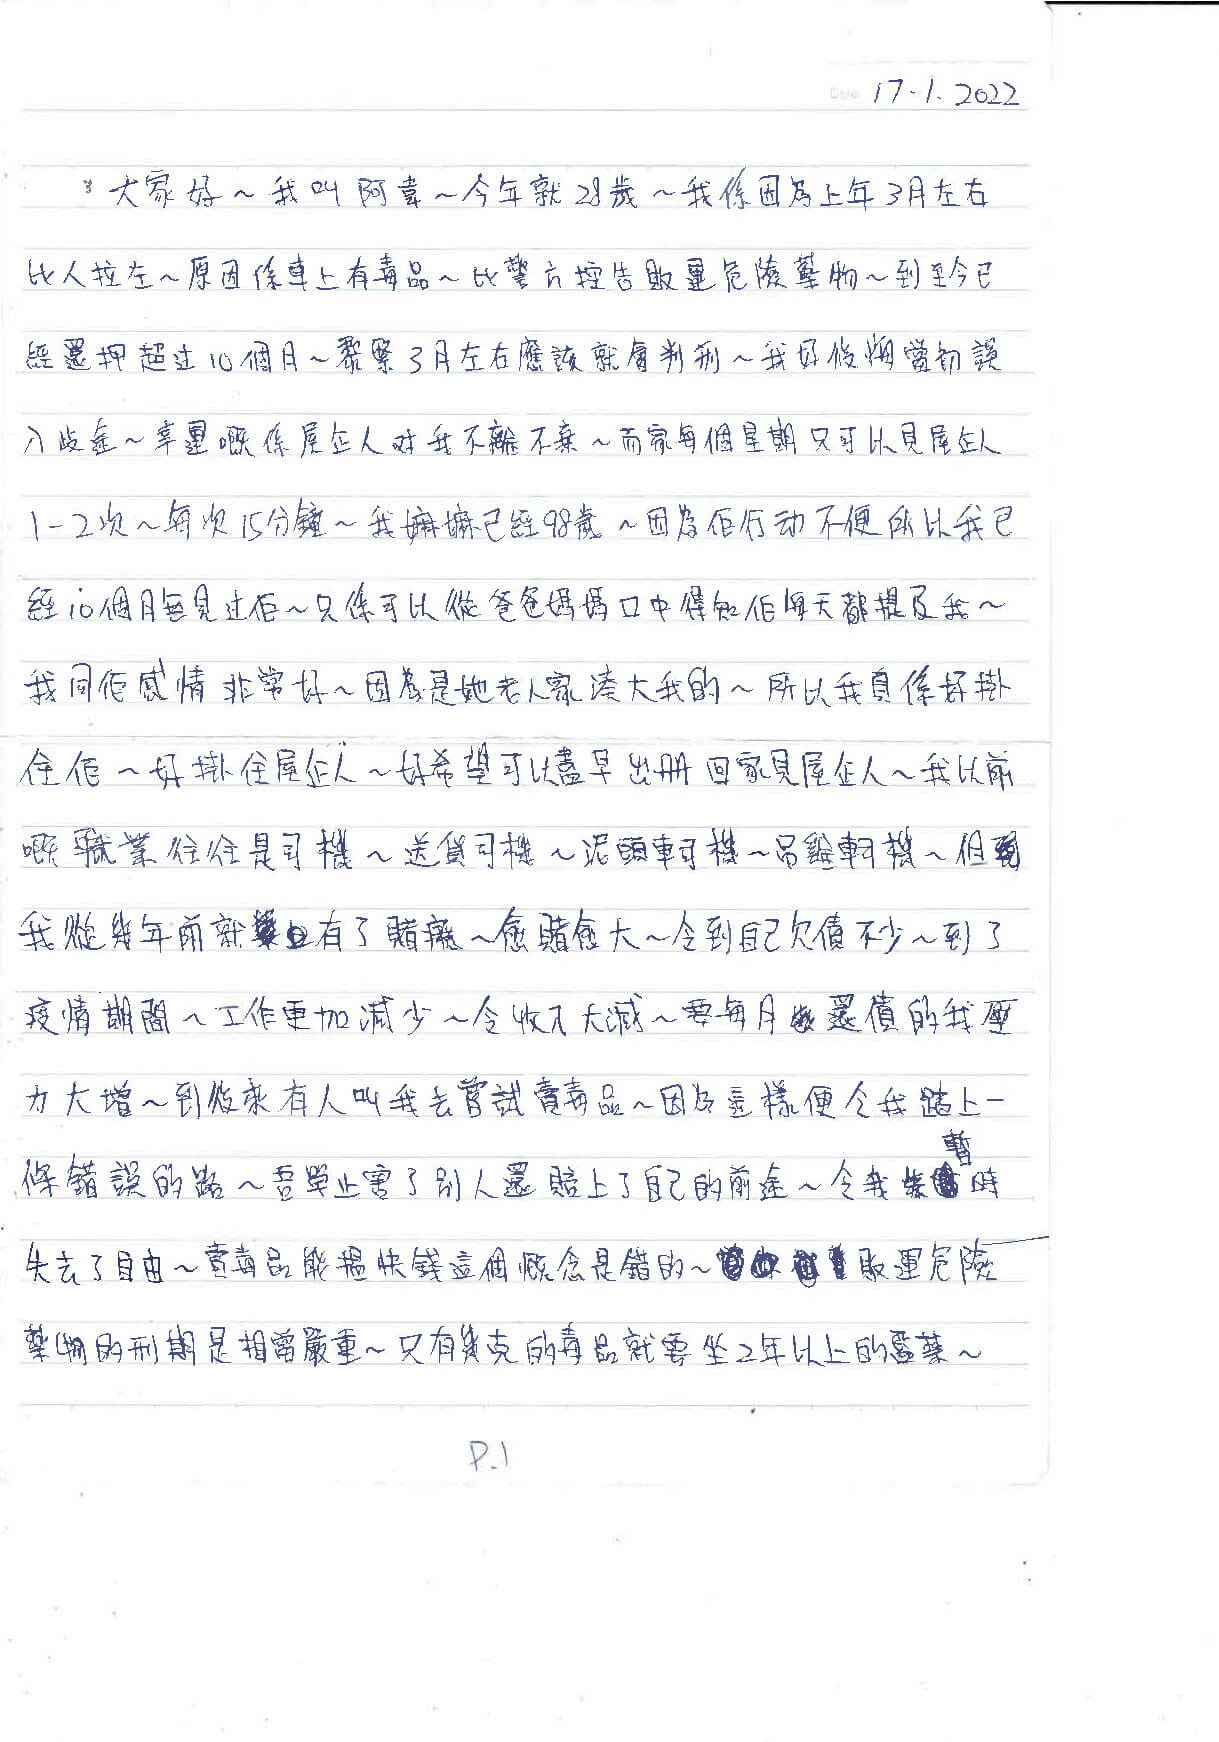 Date: 17.1.2022
大家好~我叫阿韋~今年就28歲~我係因為上年3月左右
比人拉左~原因係車上有毒品~比警方控告販運危險藥物~到至今已
經還押超过10個月~聚察3月左右應該就會判刑~我好後悔當初誤
入歧途~幸運嘅係屋企人对我不離不棄~而家每個星期只可以見屋企人
1-2次~每次15分鐘~我嫲嫲已經98歲~因為佢行动不便所以我已
經10個月無見过佢~只係可以從爸爸媽媽口中得知佢每天都提及我~
我同佢感情非常好~因為是她老人家湊大我的~所以我真係好掛
住佢~好掛住屋企人~好希望可以盡早出册回家見屋企人~我以前
嘅職業往往是司機~送貨司機~泥頭車司機~吊雞車司機~但
我從幾年前就有了賭癮~愈賭愈大~令到自己欠債不少~到了
疫情期間~工作更加減少~令收入大減~要每月還債的我壓
力大增~到後來有人叫我去嘗試賣毒品~因為這樣便令我踏上一
條錯誤的路~吾單止害了別人還賠上了自己的前途~令我暫時
失去了自由~賣毒品能搵快錢這個概念是錯的~販運危險
藥物的刑期是相當嚴重~只有幾克的毒品就要坐2年以上的監獄~
P.1